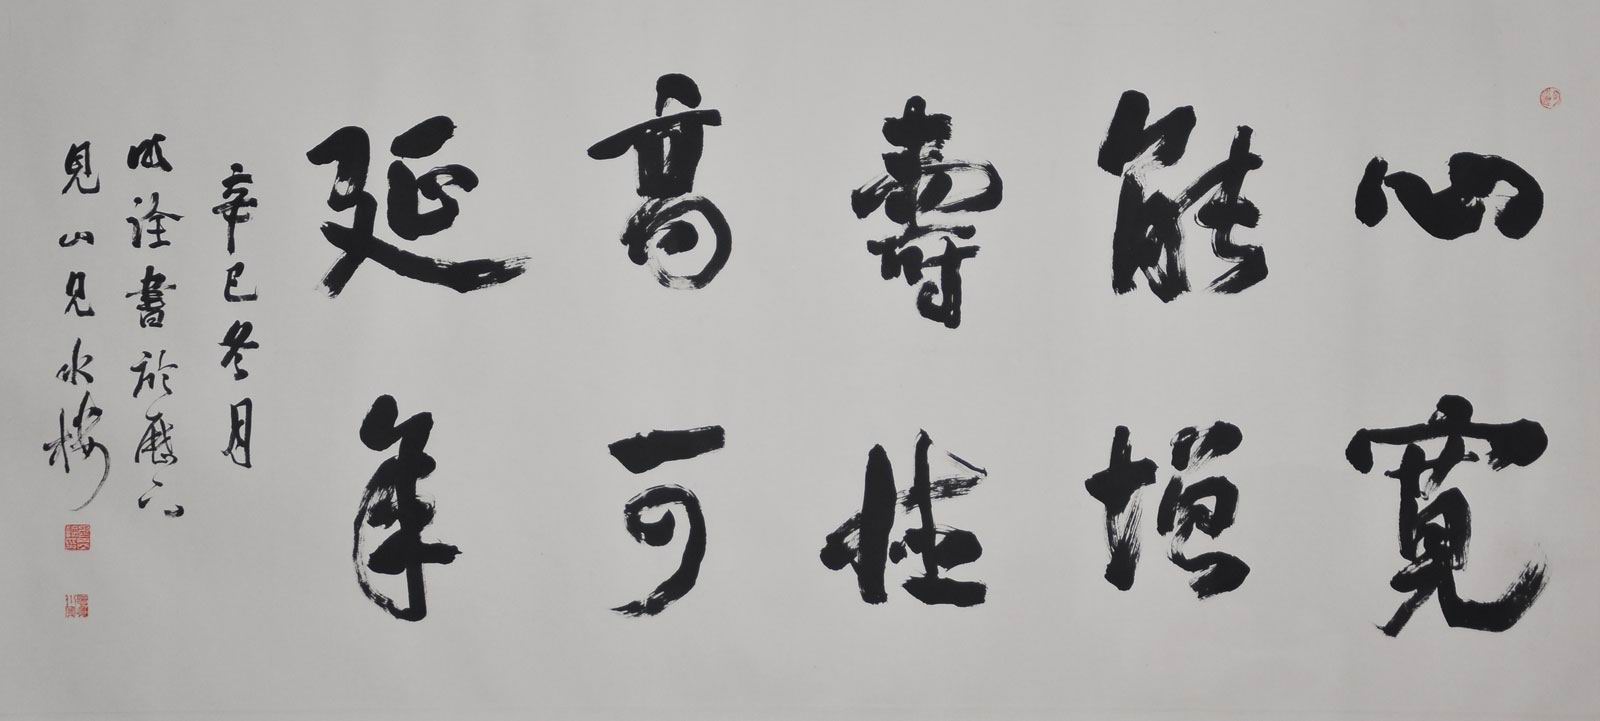 心寬
能增
壽性
高可
延年
辛巳冬月
成詮書於歷下
見山見水樓